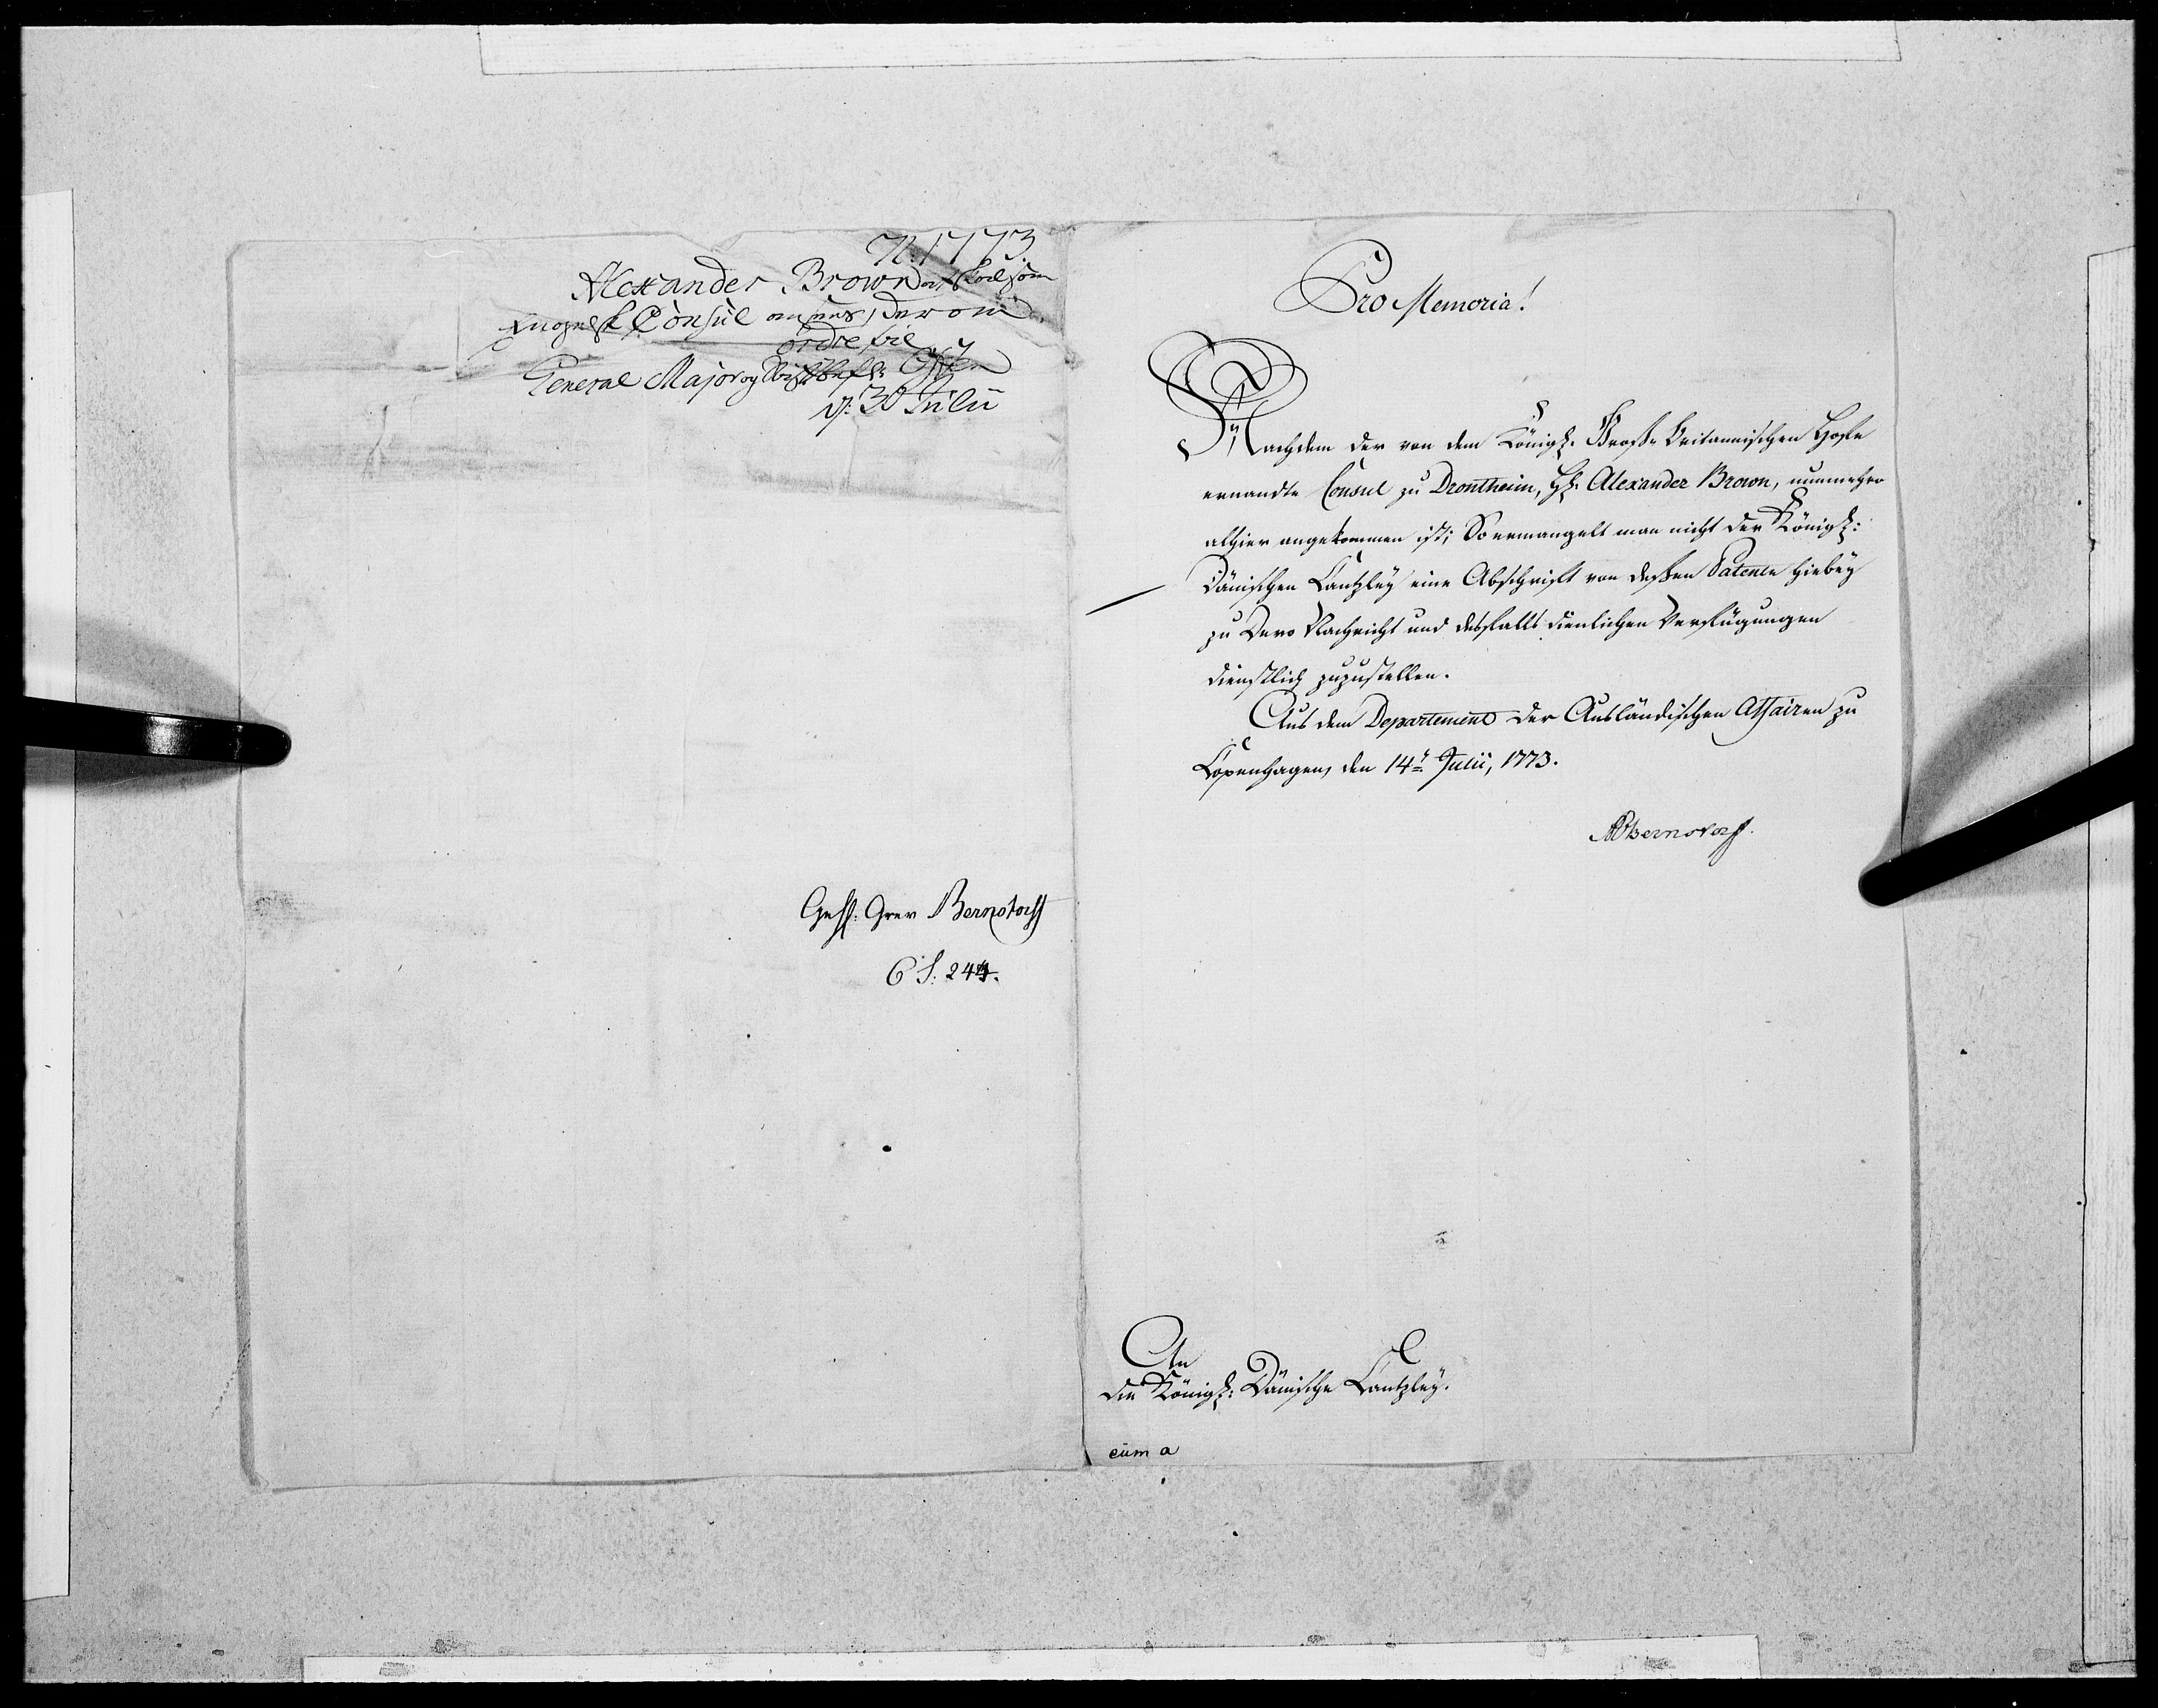 N. 1773.
Alexander Brown at skal som
Engelsk Consul ansees, derom
ordre til
General Major og
D: 30 Julii
Geh: Grev Bernstorff
6 S: 244.
Pro Memoria!
Nachdem der von dem Königl. Groß-Britannischen Hofe
ernandte Consul zu Drontheim, Hr. Alexander Brown, nunmehro
alhier angekommen ist; So ermangelt man nicht der Königl:
Dänischen Cantzley eine Abschrift von deßen Patente hiebey
zu Dero Nachricht und desfalls dienlichen Verfügungen
dienstlich zuzustellen.
Aus dem Departement der Ausländischen Affairen zu
Copenhagen, den 14t. Julii, 1773.
APBernstorff.
An
die Königl: Dänische Cantzley.
cum a